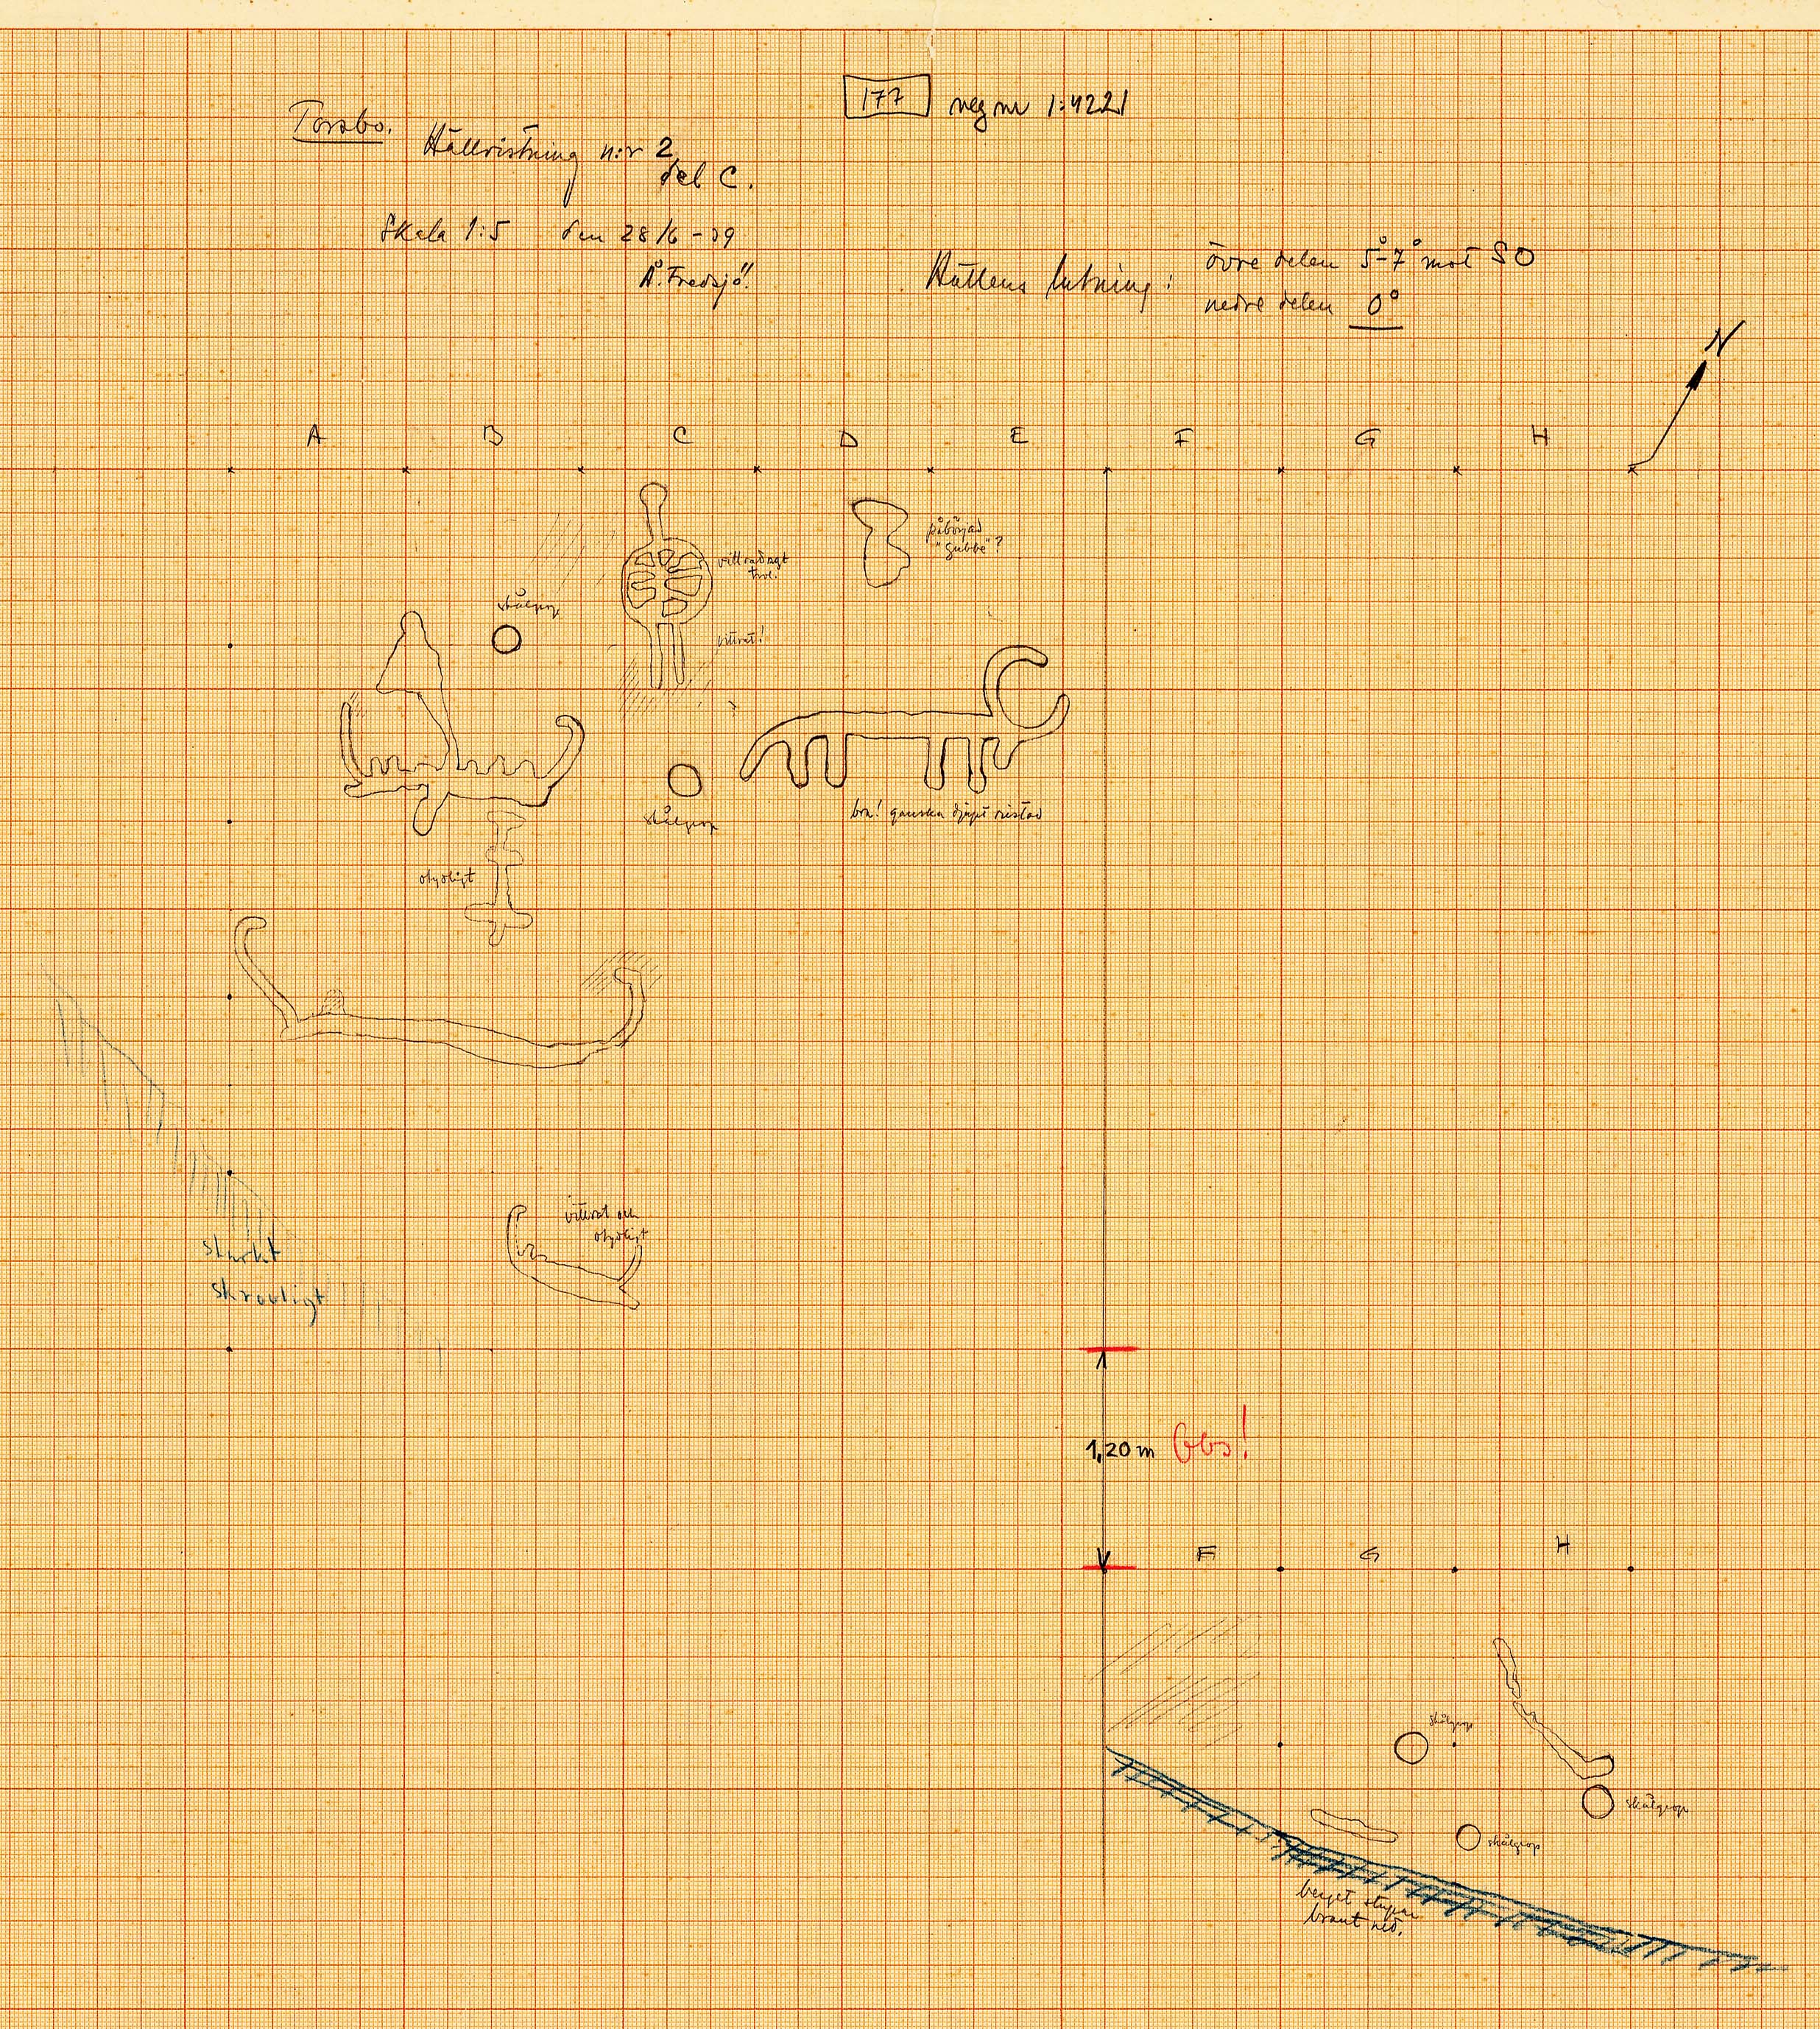 177 neg nr 1:4221
Torsbo.
Hällristning n:r 2
del C.
Skala 1:5 den 28/6-39
Å. Fredsjö.
Hällens lutning: övre delen 5°-7° mot SO
nedre delen 0°
N
A B C D E F G H
påbörjad
"gubbe"?
vittrad
skålgrop
vittrat!
skålgrop
bra! ganska djupt ristad
otydligt
vittrat och
otydligt
starkt
skrovligt
1,20 m Obs!
F G H
skålgrop
skålgrop
skålgrop
berget stupar
brant ned.